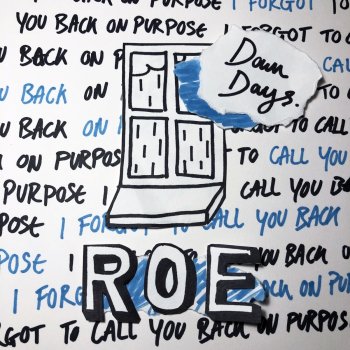 PURPOSE I FORGOT TO
YOU BACK ON PURPOSE I FORGOT TO
BACK ON PURPOSE
Dawn
Days.
CALL
YOU BACK ON
BACK ON TO CALL
ON PURPOSE TO CALL YOU
PURPOSE I CALL YOU BACK
I FORGOT TO CALL YOU BACK
POSE I BACK ON
ROE
I FORG ON PURPOS
RGOT TO CALL YOU BACK ON PURPOS